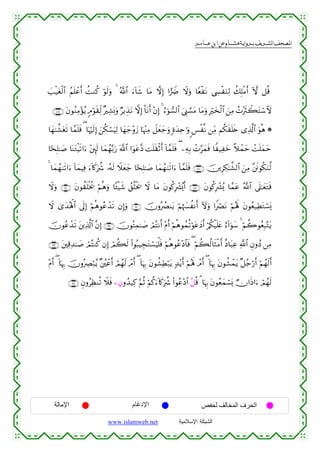 المصحف الشريف برواية هشام عن ابن عامر
قُل لَّا أَمْلِكُ لِنَفْسِى نَفْعًا وَلَا ضَرًّا إِلَّا مَا شَاءَ ٱللَّهُ وَلَوْ كُنتُ أَعْلَمُ ٱلْغَيْبَ
لَٱسْتَكْثَرْتُ مِنَ ٱلْخَيْرِ وَمَا مَسَّنِىَ ٱلسُّوءُ إِنْ أَنَا إِلَّا نَذِيرٌ وَبَشِيرٌ لِّقَوْمٍ يُؤْمِنُونَ
* هُوَ ٱلَّذِى خَلَقَكُم مِّن نَّفْسٍ وَٰحِدَةٍ وَجَعَلَ مِنْهَا زَوْجَهَا لِيَسْكُنَ إِلَيْهَا فَلَمَّا تَغَشَّىٰهَا
حَمَلَتْ حَمْلًا خَفِيفًا فَمَرَّتْ بِهِۦ فَلَمَّا أَثْقَلَت دَّعَوَا ٱللَّهَ رَبَّهُمَا لَئِنْ ءَاتَيْتَنَا صَٰلِحًا
لَّنَكُونَنَّ مِنَ ٱلشَّٰكِرِينَ فَلَمَّا ءَاتَىٰهُمَا صَٰلِحًا جَعَلَا لَهُۥ شُرَكَاءَ فِيمَا ءَاتَىٰهُمَا
فَتَعَٰلَى ٱللَّهُ عَمَّا يُشْرِكُونَ أَيُشْرِكُونَ مَا لَا يَخْلُقُ شَيْئًا وَهُمْ يُخْلَقُونَ وَلَا
يَسْتَطِيعُونَ لَهُمْ نَصْرًا وَلَا أَنفُسَهُمْ يَنصُرُونَ وَإِن تَدْعُوهُمْ إِلَى ٱلْهُدَىٰ لَا
يَتَّبِعُوكُمْ سَوَاءٌ عَلَيْكُمْ أَدَعَوْتُمُوهُمْ أَمْ أَنتُمْ صَٰمِتُونَ إِنَّ ٱلَّذِينَ تَدْعُونَ
مِن دُونِ ٱللَّهِ عِبَادٌ أَمْثَالُكُمْ فَٱدْعُوهُمْ فَلْيَسْتَجِيبُوا لَكُمْ إِن كُنتُمْ صَٰدِقِينَ
أَلَهُمْ أَرْجُلٌ يَمْشُونَ بِهَا أَمْ لَهُمْ أَيْدٍ يَبْطِشُونَ بِهَا أَمْ لَهُمْ أَعْيُنٌ يُبْصِرُونَ بِهَا أَمْ
لَهُمْ ءَاذَانٌ يَسْمَعُونَ بِهَا قُلُ ٱدْعُوا شُرَكَاءَكُمْ ثُمَّ كِيدُونِۦ فَلَا تُنظِرُونِ
الحرف المخالف لحفص الإدغام الإمالة
الشبكة الإسلامية www.islamweb.net